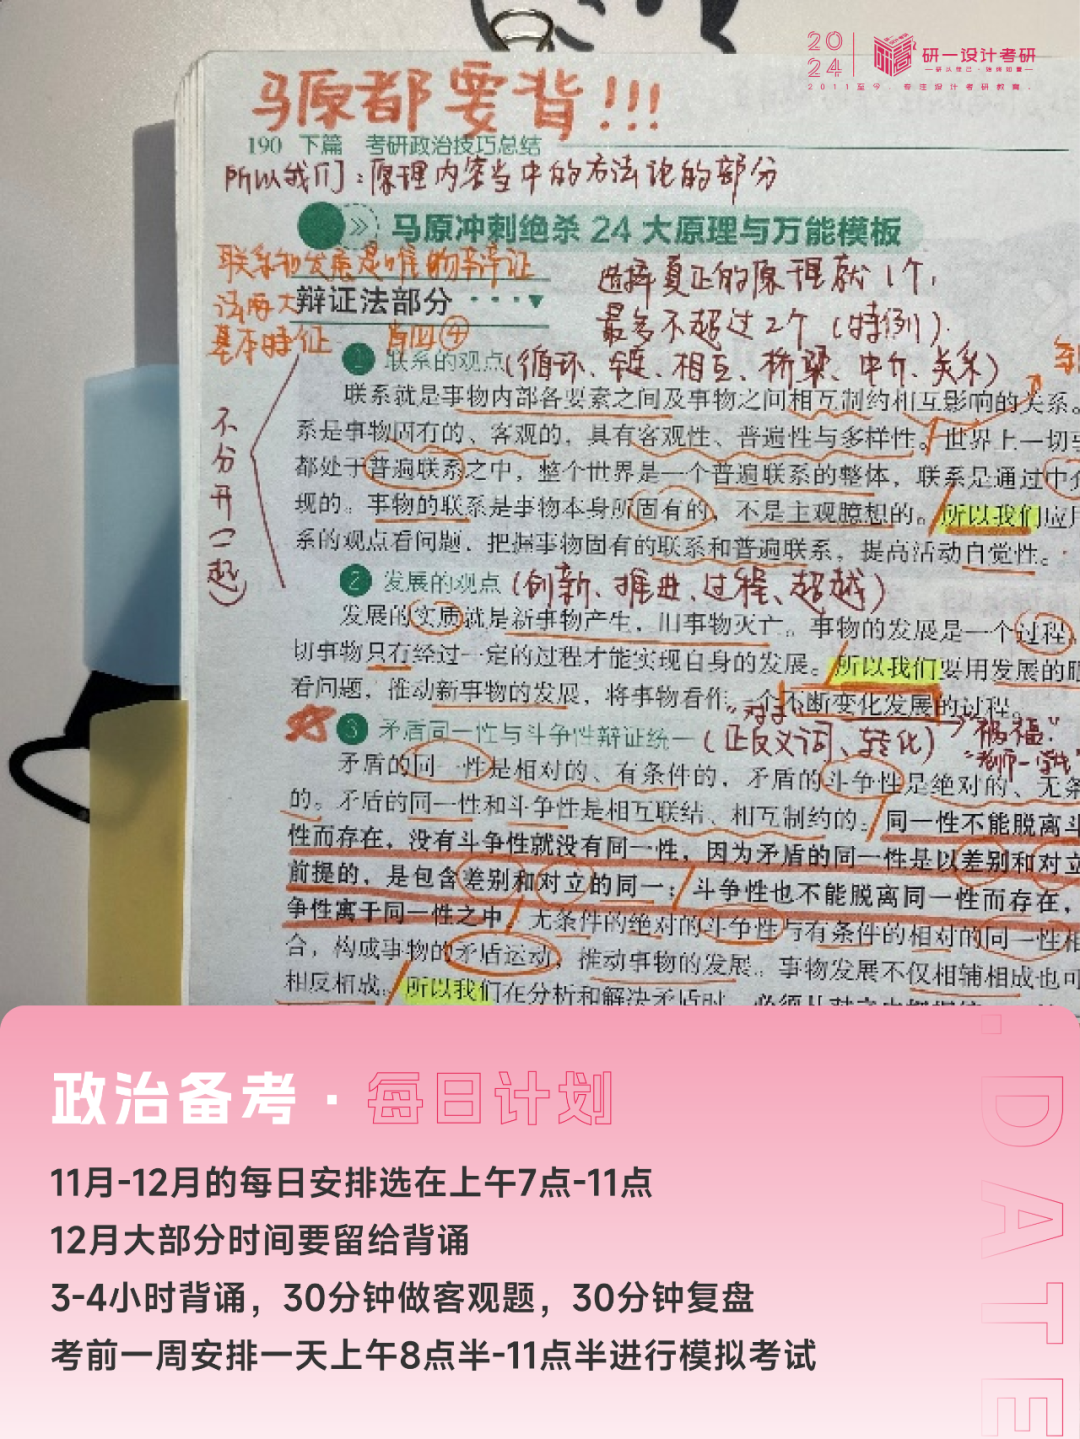 20
24
研一设计考研
2011至今·专注设计考研教育.
马原都要背!!!
190 下篇 考研政治技巧总结
所以我们：原理内容当中的方法论的部分
马原冲刺绝杀 24 大原理与万能模板
联系和发展是唯物辩证
法两大
基本特征
选择真正的原理就1个,
最多不超过2个(特例).
辩证法部分
1 联系的观点(循环、链、相互、桥梁、中介、关系)
联系就是事物内部各要素之间及事物之间相互制约相互影响的关系。
系是事物固有的、客观的，具有客观性、普遍性与多样性。世界上一切事
都处于普遍联系之中，整个世界是一个普遍联系的整体，联系是通过中介
现的。事物的联系是事物本身所固有的，不是主观臆想的。所以我们应用
系的观点看问题，把握事物固有的联系和普遍联系，提高活动自觉性。
不分开(一起)
2 发展的观点(创新、推进、过程、超越)
发展的实质就是新事物产生，旧事物灭亡。事物的发展是一个过程。
切事物只有经过一定的过程才能实现自身的发展。所以我们要用发展的眼
看问题，推动新事物的发展，将事物看作一个不断变化发展的过程。
3 矛盾同一性与斗争性辩证统一(正反义词、转化)
矛盾的同一性是相对的、有条件的，矛盾的斗争性是绝对的、无条
的。矛盾的同一性和斗争性是相互联结、相互制约的。同一性不能脱离斗
性而存在，没有斗争性就没有同一性，因为矛盾的同一性是以差别和对立
前提的，是包含差别和对立的同一；斗争性也不能脱离同一性而存在，
争性寓于同一性之中，无条件的绝对的斗争性与有条件的相对的同一性相
合，构成事物的矛盾运动，推动事物的发展。事物发展不仅相辅相成也可
相反相成。所以我们在分析和解决矛盾时，必须从对立中把握统一
政治备考·每日计划
11月-12月的每日安排选在上午7点-11点
12月大部分时间要留给背诵
3-4小时背诵，30分钟做客观题，30分钟复盘
考前一周安排一天上午8点半-11点半进行模拟考试
.DATE